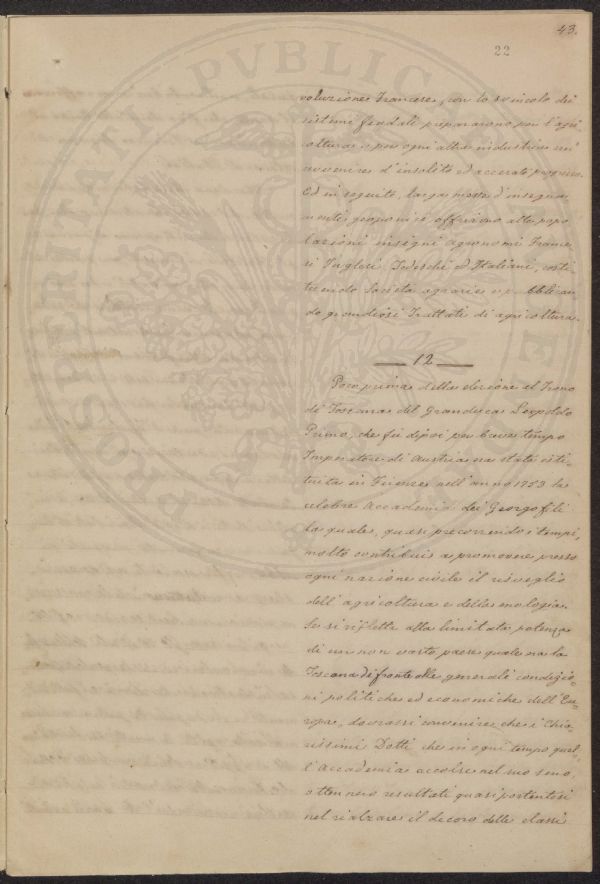 43.
22
PROSPERITATI PVBLICAE
voluzione Francese, con lo svincolo dei
sistemi feudali prepararono per l'agri
coltura e per ogni altra industria un'
avvenire d'insolito ed accerato progresso.
Ed in seguito, larga messe d'insegna
menti geoponici offrirono alle popo
lazioni insigni agronomi France
si Inglesi Tedeschi ed Italiani, costi
tuendo Società agrarie e pubblican
do grandiosi Trattati di agricoltura.
12
Poco prima della elezione al Trono
di Toscana del Granduca Leopoldo
Primo, che fu dipoi per breve tempo
Imperatore di Austria era stata isti
tuita in Firenze nell'anno 1753 la
celebre Accademia dei Georgofili
la quale, quasi precorrendo i tempi,
molto contribuì a promovere presso
ogni nazione civile il risveglio
dell'agricoltura e della enologia.
Se si riflette alla limitata potenza
di un non vasto paese quale era la
Toscana di fronte alle generali condizio
ni politiche ed economiche dell'Eu
ropa, dovrassi convenire che i Chia
rissimi Dotti che in ogni tempo quel
l'Accademia accolse nel suo seno,
ottennero resultati quasi portentosi
nel rialzare il decoro delle classi